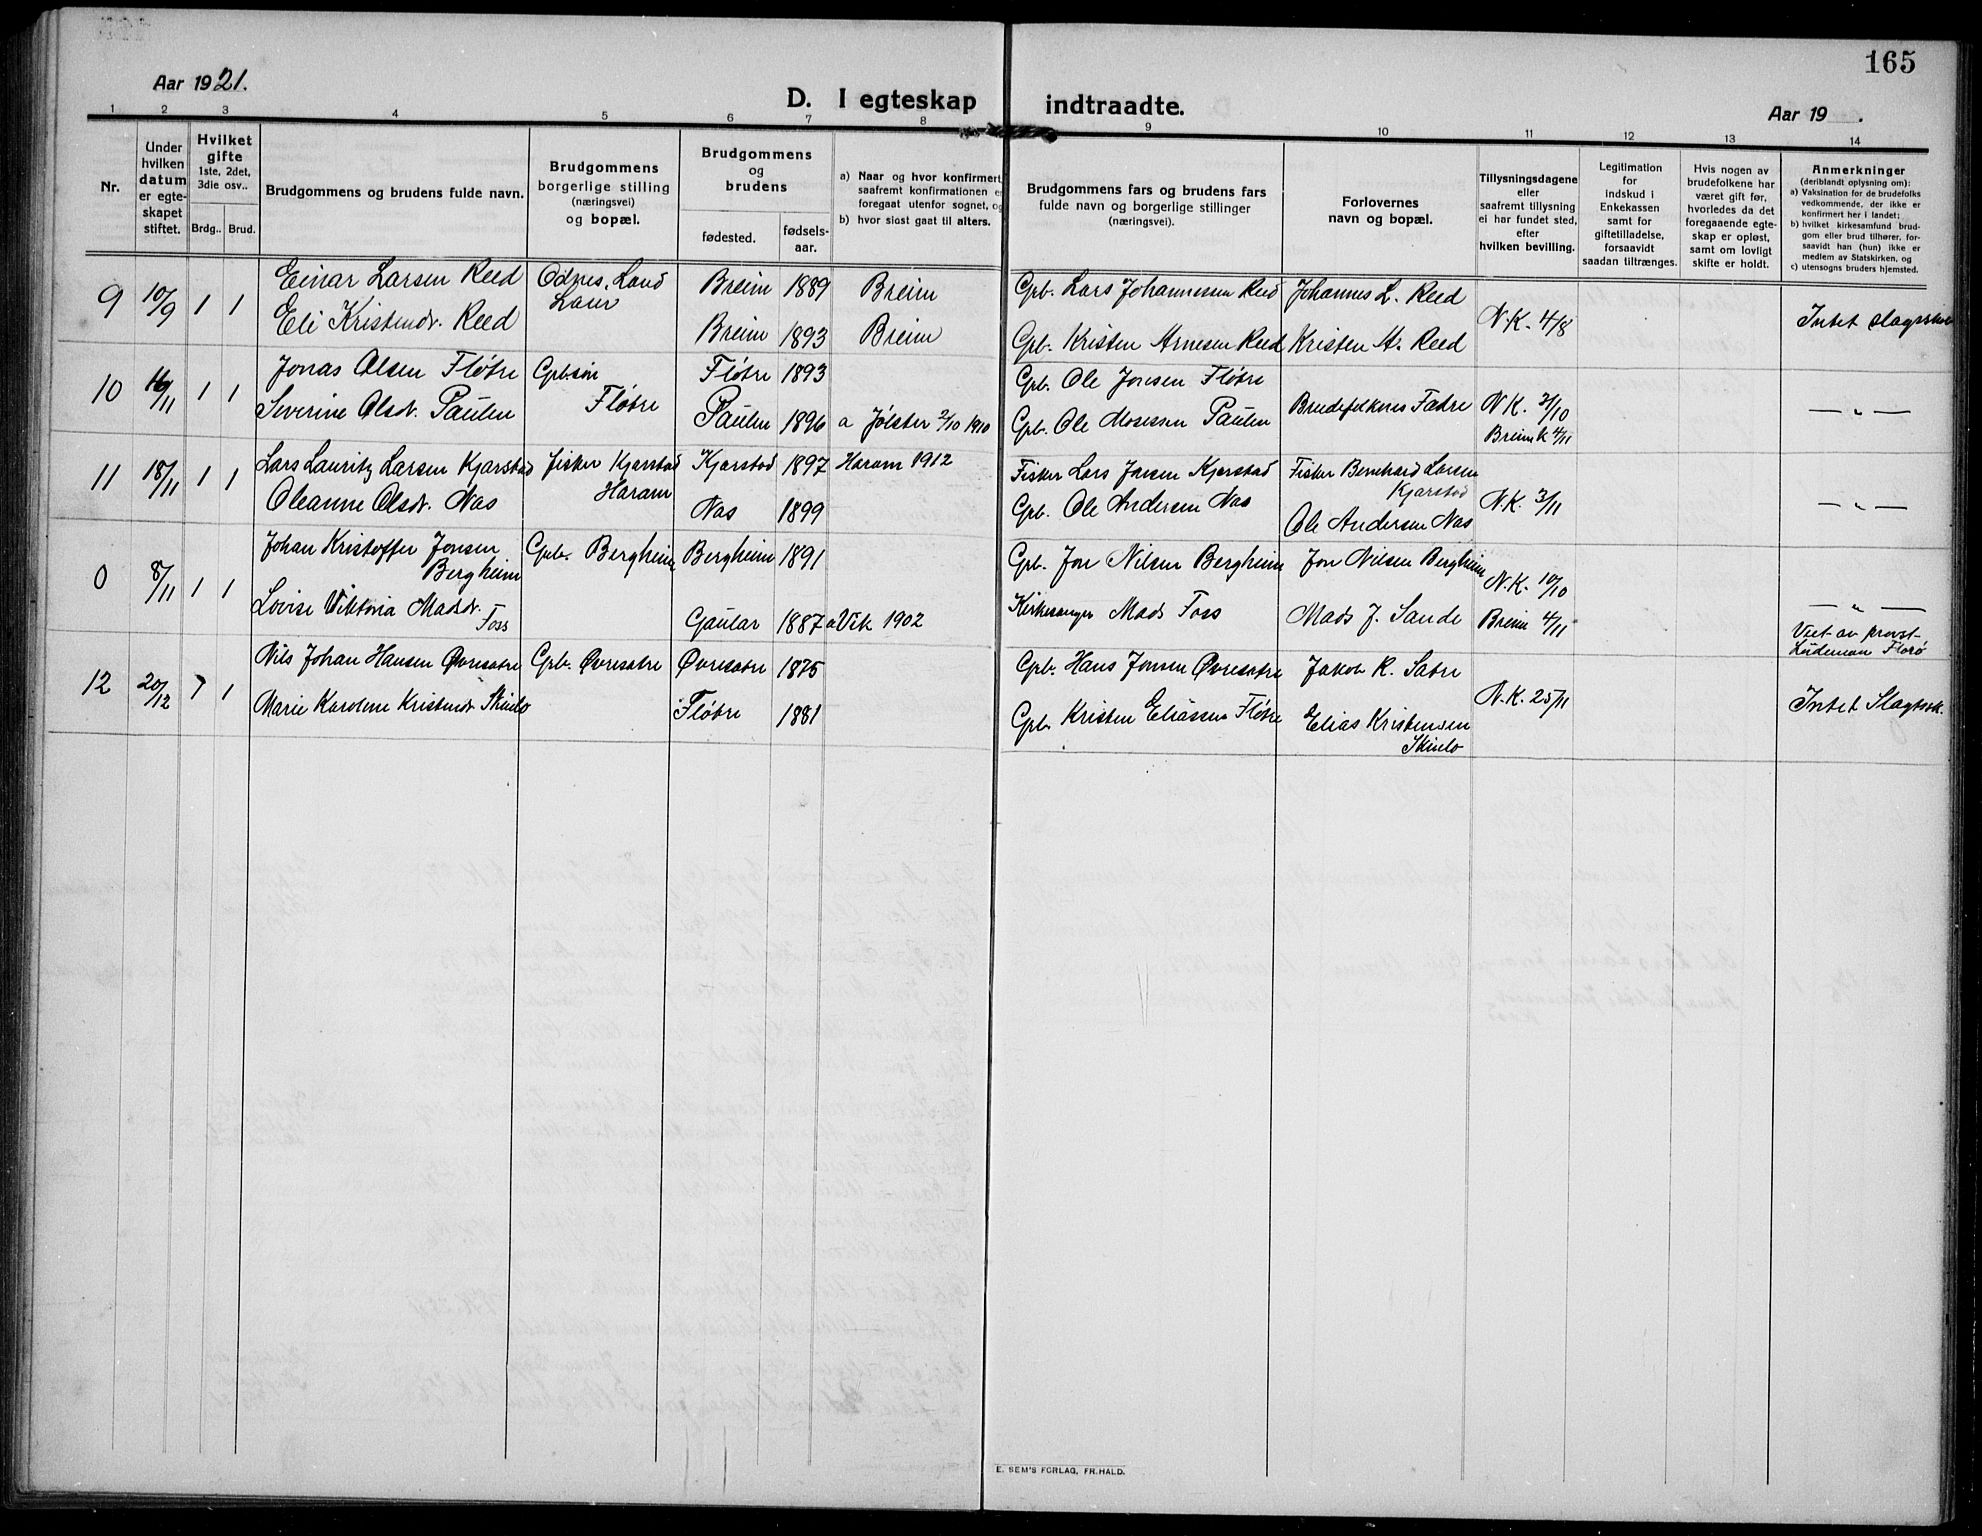 165
Aar 1921.
D. I egteskap indtraadte.
Aar 19 .
1 2 3 4 5 6 7 8 9 10 11 12 13 14
Nr.
Under hvilken datum er egteskapet stiftet.
Hvilket gifte
1ste, 2det, 3die osv..
Brdg.. Brud.
Brudgommens og brudens fulde navn.
Brudgommens borgerlige stilling (næringsvei) og bopæl.
Brudgommens og brudens
fødested.
fødselsaar.
a) Naar og hvor konfirmert saafremt konfirmationen e foregaat utenfor sognet, og
b) hvor sisst gaat til alters.
Brudgommens fars og brudens fars fulde navn og borgerlige stillinger (næringsvei).
Forlovernes navn og bopæl.
Tillysningsdagene eller saafremt tillysning ei har fundet sted, efter hvilken bevilling.
Legitimation for indskud i Enkekassen samt for giftetilladelse, forsaavidt saadan tiltrænges.
Hvis nogen av brudefolkene har været gift før, hvorledes da det foregaaende egteskap er opløst, samt om lovligt skifte er holdt.
Anmerkninger
(deriblandt oplysning om):
a) Vaksination for de brudefolks vedkommende, der ikke er konfirmert her i landet;
b) hvilket kirkesamfund brudgom eller brud tilhører, forsaavidt han (hun) ikke er medlem av Statskirken, og
c) utensogns bruders hjemsted.
9 10/9 1 1 Einar Larsen Reed Odnes, Land Breim 1889 Breim Gpb. Lars Johannessen Reed Johannes L. Reed N.K. 4/8 Intet slagssk
Eli Kristendr. Reed Breim 1893 Breim Gpb. Kristen Arnesen Reed Kristen A. Reed
10 16/11 1 1 Jonas Olsen Fløtre Gpb.søn Fløtre 1893 Gpb. Ole Jonsen Fløtre Brudefolkenes Fædre N K. 2/10 — " —
Severine Olsdr. Paulen Fløtre Paulen 1896 a Jølster 2/10 1910 Gpb. Ole Mosessen Paulen Breim k 4/11
11 18/11 1 1 Lars Lauritz Larsen Kjærstad Fisker Kjærstad Kjærstad 1897 Haram 1912 Fisker Lars Jensen Kjærstad Fisker Bernhard Larsen Kjærstad N.K. 3/11 — " —
Oleanne Olsdr. Nos Haram Nos 1899 Gpb. Ole Andersen Nos Ole Andersen Nos
0 8/11 1 1 Johan Kristoffer Jonsen Bergheim Gpb. Bergheim Bergheim 1891 Gpb. Jon Nilsen Bergheim Jon Nilsen Bergheim N.K. 10/10
Lovise Viktoria Madsdr. Foss Gaular 1887 a Vik 1902 Kirkesanger Mads Foss Mads J. Sande Breim 4/11 — " —
Viet av provst Lødeman Florø
12 20/12 1 1 Nils Johan Hansen Øvresætre Gpb. Øvresætre Øvresætre 1875 Gpb. Hans Jonsen Øvresætre Jakob R. Sætre N.K. 25/11 Intet Slagtssk.
Marie Karolene Kristendr Skinlo Fløtre 1881 Gpb. Kristen Eliassen Fløtre Elias Kristensen Skinlo
E. SEM'S FORLAG, FR.HALD.